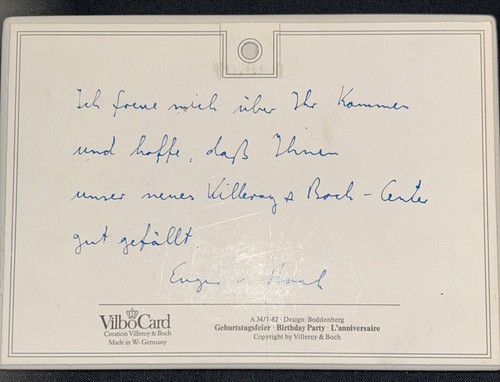 Ich freue mich über Ihr Kommen
und hoffe, daß Ihnen
unser neues Villeroy & Boch - Center
gut gefällt.
VilboCard
Creation Villeroy & Boch
Made in W-Germany
A 34/1-82 · Design: Boddenberg
Geburtstagsfeier · Birthday Party · L'anniversaire
Copyright by Villeroy & Boch